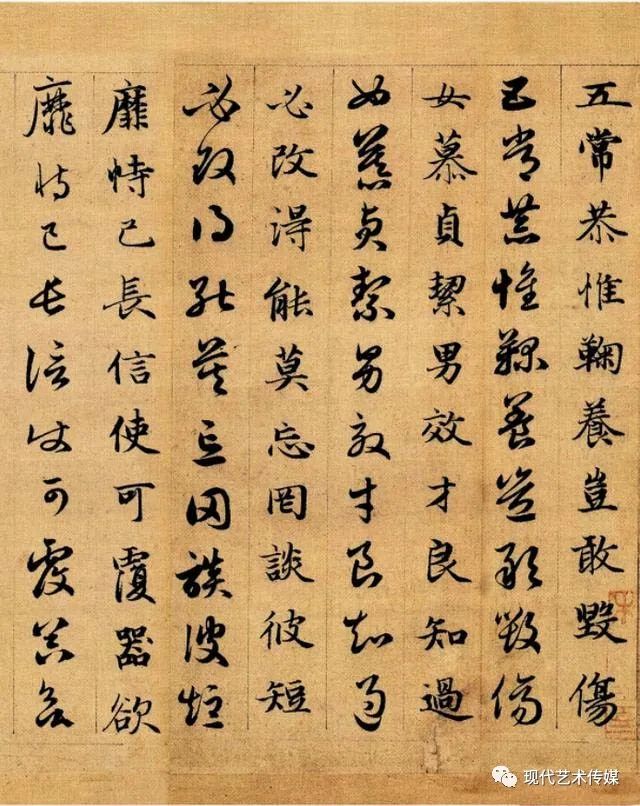 五常恭惟鞠養豈敢毀傷
五常恭惟鞠養豈敢毀傷
女慕貞絜男效才良知過
女慕貞絜男效才良知過
必改得能莫忘罔談彼短
必改得能莫忘罔談彼短
靡恃己長信使可覆器欲
靡恃己長信使可覆器欲
现代艺术传媒